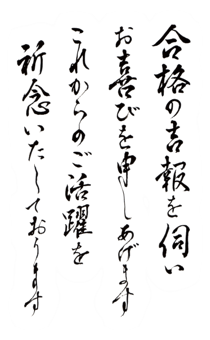 合格の吉報を伺い
お喜びを申しあげます
これからのご活躍を
祈念いたしております